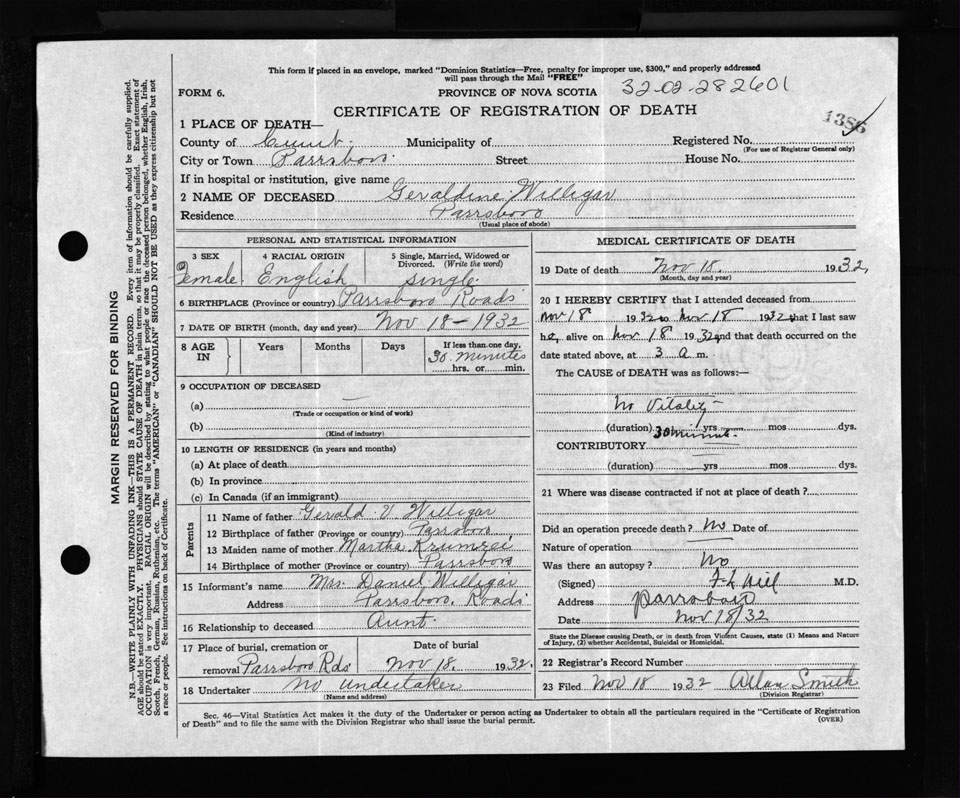 This form if placed in an envelope, marked "Dominion Statistics—Free, penalty for improper use, $300," and properly addressed
will pass through the Mail "FREE"
FORM 6.
PROVINCE OF NOVA SCOTIA
32-02-282601
CERTIFICATE OF REGISTRATION OF DEATH
1386
1 PLACE OF DEATH—
County of Cumb. Municipality of Registered No.
(For use of Registrar General only)
City or Town Parrsboro. Street House No.
If in hospital or institution, give name
2 NAME OF DECEASED Geraldine Willigar
Residence Parrsboro
(Usual place of abode)
PERSONAL AND STATISTICAL INFORMATION
3 SEX 4 RACIAL ORIGIN 5 Single, Married, Widowed or
Divorced. (Write the word)
Female English single
6 BIRTHPLACE (Province or country) Parrsboro Roads
7 DATE OF BIRTH (month, day and year) Nov 18 - 1932
8 AGE IN Years Months Days If less than one day,
30 minutes
hrs. or min.
9 OCCUPATION OF DECEASED
(a) —
(Trade or occupation or kind of work)
(b)
(Kind of industry)
10 LENGTH OF RESIDENCE (in years and months)
(a) At place of death
(b) In province
(c) In Canada (if an immigrant)
Parents
11 Name of father Gerald V Willigar
12 Birthplace of father (Province or country) Parrsboro
13 Maiden name of mother Martha Krumzei
14 Birthplace of mother (Province or country) Parrsboro
15 Informant's name Mrs. Daniel Willigar
Address Parrsboro. Roads
16 Relationship to deceased Aunt.
17 Place of burial, cremation or Date of burial
removal Parrsboro Rds Nov 18. 1932.
18 Undertaker no undertaker
MEDICAL CERTIFICATE OF DEATH
19 Date of death Nov 18. 1932,
(Month, day and year)
20 I HEREBY CERTIFY that I attended deceased from
Nov 18 1932 to Nov 18 1932, that I last saw
he alive on Nov 18 1932 and that death occurred on the
date stated above, at 3 a m.
The CAUSE of DEATH was as follows:—
No Vitality -
(duration) yrs mos dys.
30 minut.
CONTRIBUTORY
(duration) yrs mos dys.
21 Where was disease contracted if not at place of death?
Did an operation precede death? No Date of
Nature of operation
Was there an autopsy? No
(Signed) F L Hill M.D.
Address Parrsboro
Date Nov 18/32
State the Disease causing Death, or in death from Violent Causes, state (1) Means and Nature
of Injury, (2) whether Accidental, Suicidal or Homicidal.
22 Registrar's Record Number
23 Filed Nov 18 1932 Allan Smith
(Division Registrar)
Sec. 46—Vital Statistics Act makes it the duty of the Undertaker or person acting as Undertaker to obtain all the particulars required in the "Certificate of Registration
of Death" and to file the same with the Division Registrar who shall issue the burial permit.
(OVER)
MARGIN RESERVED FOR BINDING
N.B.—WRITE PLAINLY WITH UNFADING INK—THIS IS A PERMANENT RECORD. Every item of information should be carefully supplied.
AGE should be stated EXACTLY. PHYSICIANS should STATE CAUSE OF DEATH in plain terms, so that it may be properly classified. Exact statement of
OCCUPATION is very important. RACIAL ORIGIN will be described by stating to what people or race the deceased person belonged, whether English, Irish,
Scotch, French, German, Russian, Ruthenian, etc. The terms "AMERICAN" or "CANADIAN" SHOULD NOT BE USED as they express citizenship but not
a race or people. See instructions on back of Certificate.